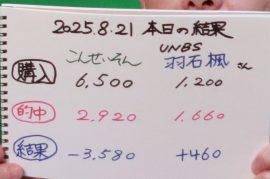 2025.8.21 本日の結果
こんせいろん UNBS 羽石楓さん
購入 6,500 1,200
的中 2,920 1,660
結果 -3,580 +460